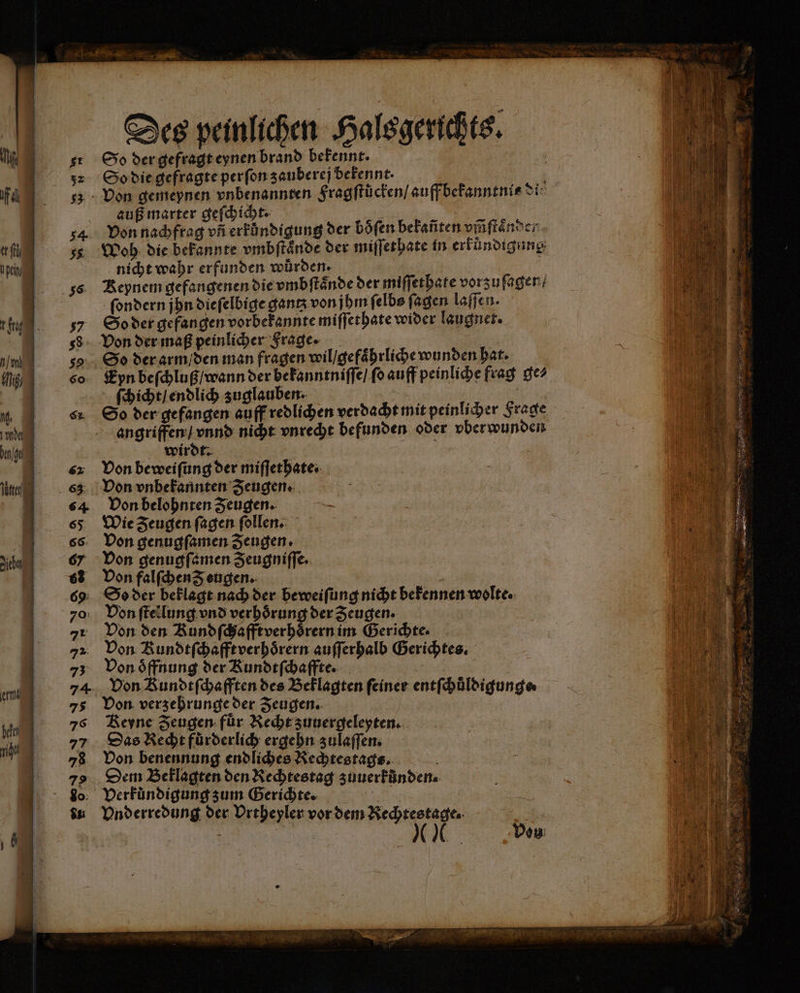 Des peinlichen Halsgerichts.
51 So der gefragt eynen brand bekennt.
52 So die gefragte perſon zauberej bekennt.
53 Von gemeynen vnbenannten Fragſtuͤcken/ auff bekanntnis di
auß marter geſchicht.
54 Von nachfrag vñ erkuͤndigung der boͤſen bekañten vm̃ſtaͤnden
55 Woh die bekannte vmbſtaͤnde der miſſethate in erkuͤndigung
nicht wahr erfunden wuͤrden.
56 Keynem gefangenen die vmbſtaͤnde der miſſethate vorzuſagen/
ſondern jhn dieſelbige gantz von jhm ſelbs ſagen laſſen.
57 So der gefangen vorbekannte miſſethate wider laugnet.
58 Von der maß peinlicher Frage.
59 So der arm/den man fragen wil/gefaͤhrliche wunden hat.
60 Eyn beſchluß/wann der bekanntniſſe/ ſo auff peinliche frag ge⸗
ſchicht/endlich zuglauben.
61 So der gefangen auff redlichen verdacht mit peinlicher Frage
angriffen/ vnnd nicht vnrecht befunden oder vberwunden
wirdt.
62 Von beweiſung der miſſethate.
63 Von vnbekannten Zeugen.
64 Von belohnten Zeugen.
65 Wie Zeugen ſagen ſollen.
66 Von genugſamen Zeugen.
67 Von genugſamen Zeugniſſe.
68 Von falſchen Zeugen.
69 So der beklagt nach der beweiſung nicht bekennen wolte.
70 Von ſtellung vnd verhoͤrung der Zeugen.
71 Von den Kundſchafftverhoͤrern im Gerichte.
72 Von Kundtſchafftverhoͤrern auſſerhalb Gerichtes.
73 Von oͤffnung der Kundtſchaffte.
74 Von Kundtſchafften des Beklagten ſeiner entſchuͤldigunge
75 Von verzehrunge der Zeugen.
76 Keyne Zeugen fuͤr Recht zuuergeleyten.
77 Das Recht fuͤrderlich ergehn zulaſſen.
78 Von benennung endliches Rechtestags.
79 Dem Beklagten den Rechtestag zuuerkuͤnden.
80 Verkuͤndigung zum Gerichte.
81 Vnderredung der Vrtheyler vor dem Rechtestage.
)( )( Von